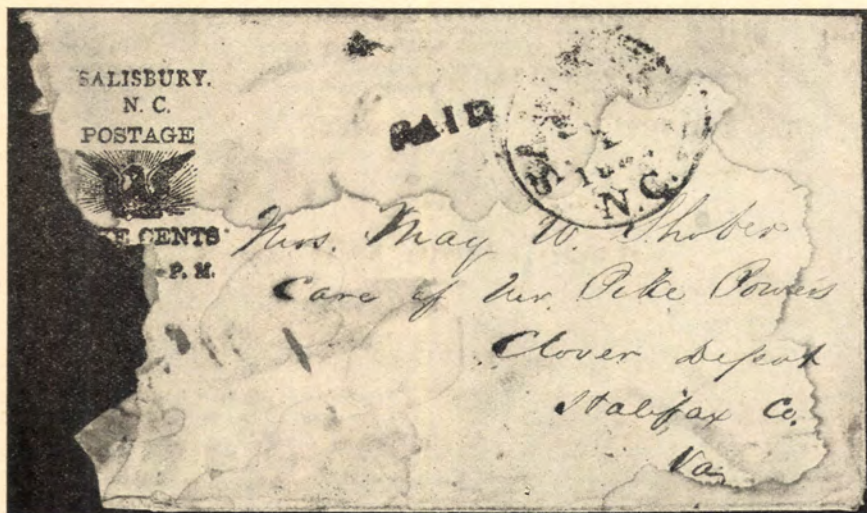 SALISBURY.
N. C.
POSTAGE
CENTS
P. M.
PAID
N.C.
Mrs. May W. Shober
Care of Mr. Pike Powers
Clover Depot
Halifax Co.
Va